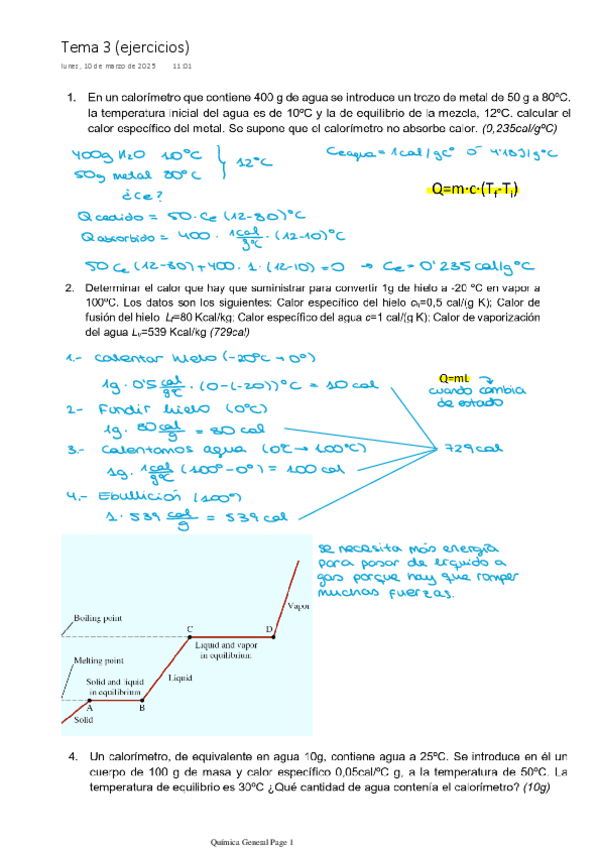 Tema 3 (ejercicios)
lunes, 10 de marzo de 2025 11:01
1. En un calorímetro que contiene 400 g de agua se introduce un trozo de metal de 50 g a 80ºC.
la temperatura inicial del agua es de 10ºC y la de equilibrio de la mezcla, 12ºC. calcular el
calor específico del metal. Se supone que el calorímetro no absorbe calor. (0,235cal/gºC)
400g H2O 10ºC
50g metal 80ºC
12ºC
¿Ce?
Ceagua = 1cal/gCº o 4'18J/gºC
Q=m·c·(Tf-Ti)
Qcedido = 50·Ce (12-80)ºC
Qabsorbido = 400 · 1cal/gºC · (12-10)ºC
50Ce (12-80)+400·1·(12-10)=0 → Ce=0'235cal/gºC
2. Determinar el calor que hay que suministrar para convertir 1g de hielo a -20 ºC en vapor a
100ºC. Los datos son los siguientes: Calor específico del hielo ch=0,5 cal/(g K); Calor de
fusión del hielo Lf=80 Kcal/kg; Calor específico del agua c=1 cal/(g K); Calor de vaporización
del agua Lv=539 Kcal/kg (729cal)
1.- Calentar hielo (-20ºC → 0º)
1g · 0'5 cal/gºC · (0-(-20))ºC = 10 cal
Q=mL
cuando cambia
de estado
2- Fundir hielo (0ºC)
1g · 80 cal/g = 80 cal
3.- Calentamos agua (0ºC → 100ºC)
729cal
1g · 1cal/gºC (100º-0º) = 100 cal
4.- Ebullición (100º)
1 · 539 cal/g = 539 cal
se necesita más energía
para pasar de líquido a
gas porque hay que romper
muchas fuerzas.
Vapor
Boiling point
C
D
Liquid and vapor
in equilibrium
Melting point
Solid and liquid
in equilibrium
Liquid
A
B
Solid
4. Un calorímetro, de equivalente en agua 10g, contiene agua a 25ºC. Se introduce en él un
cuerpo de 100 g de masa y calor específico 0,05cal/ºC g, a la temperatura de 50ºC. La
temperatura de equilibrio es 30ºC ¿Qué cantidad de agua contenía el calorímetro? (10g)
Química General Page 1